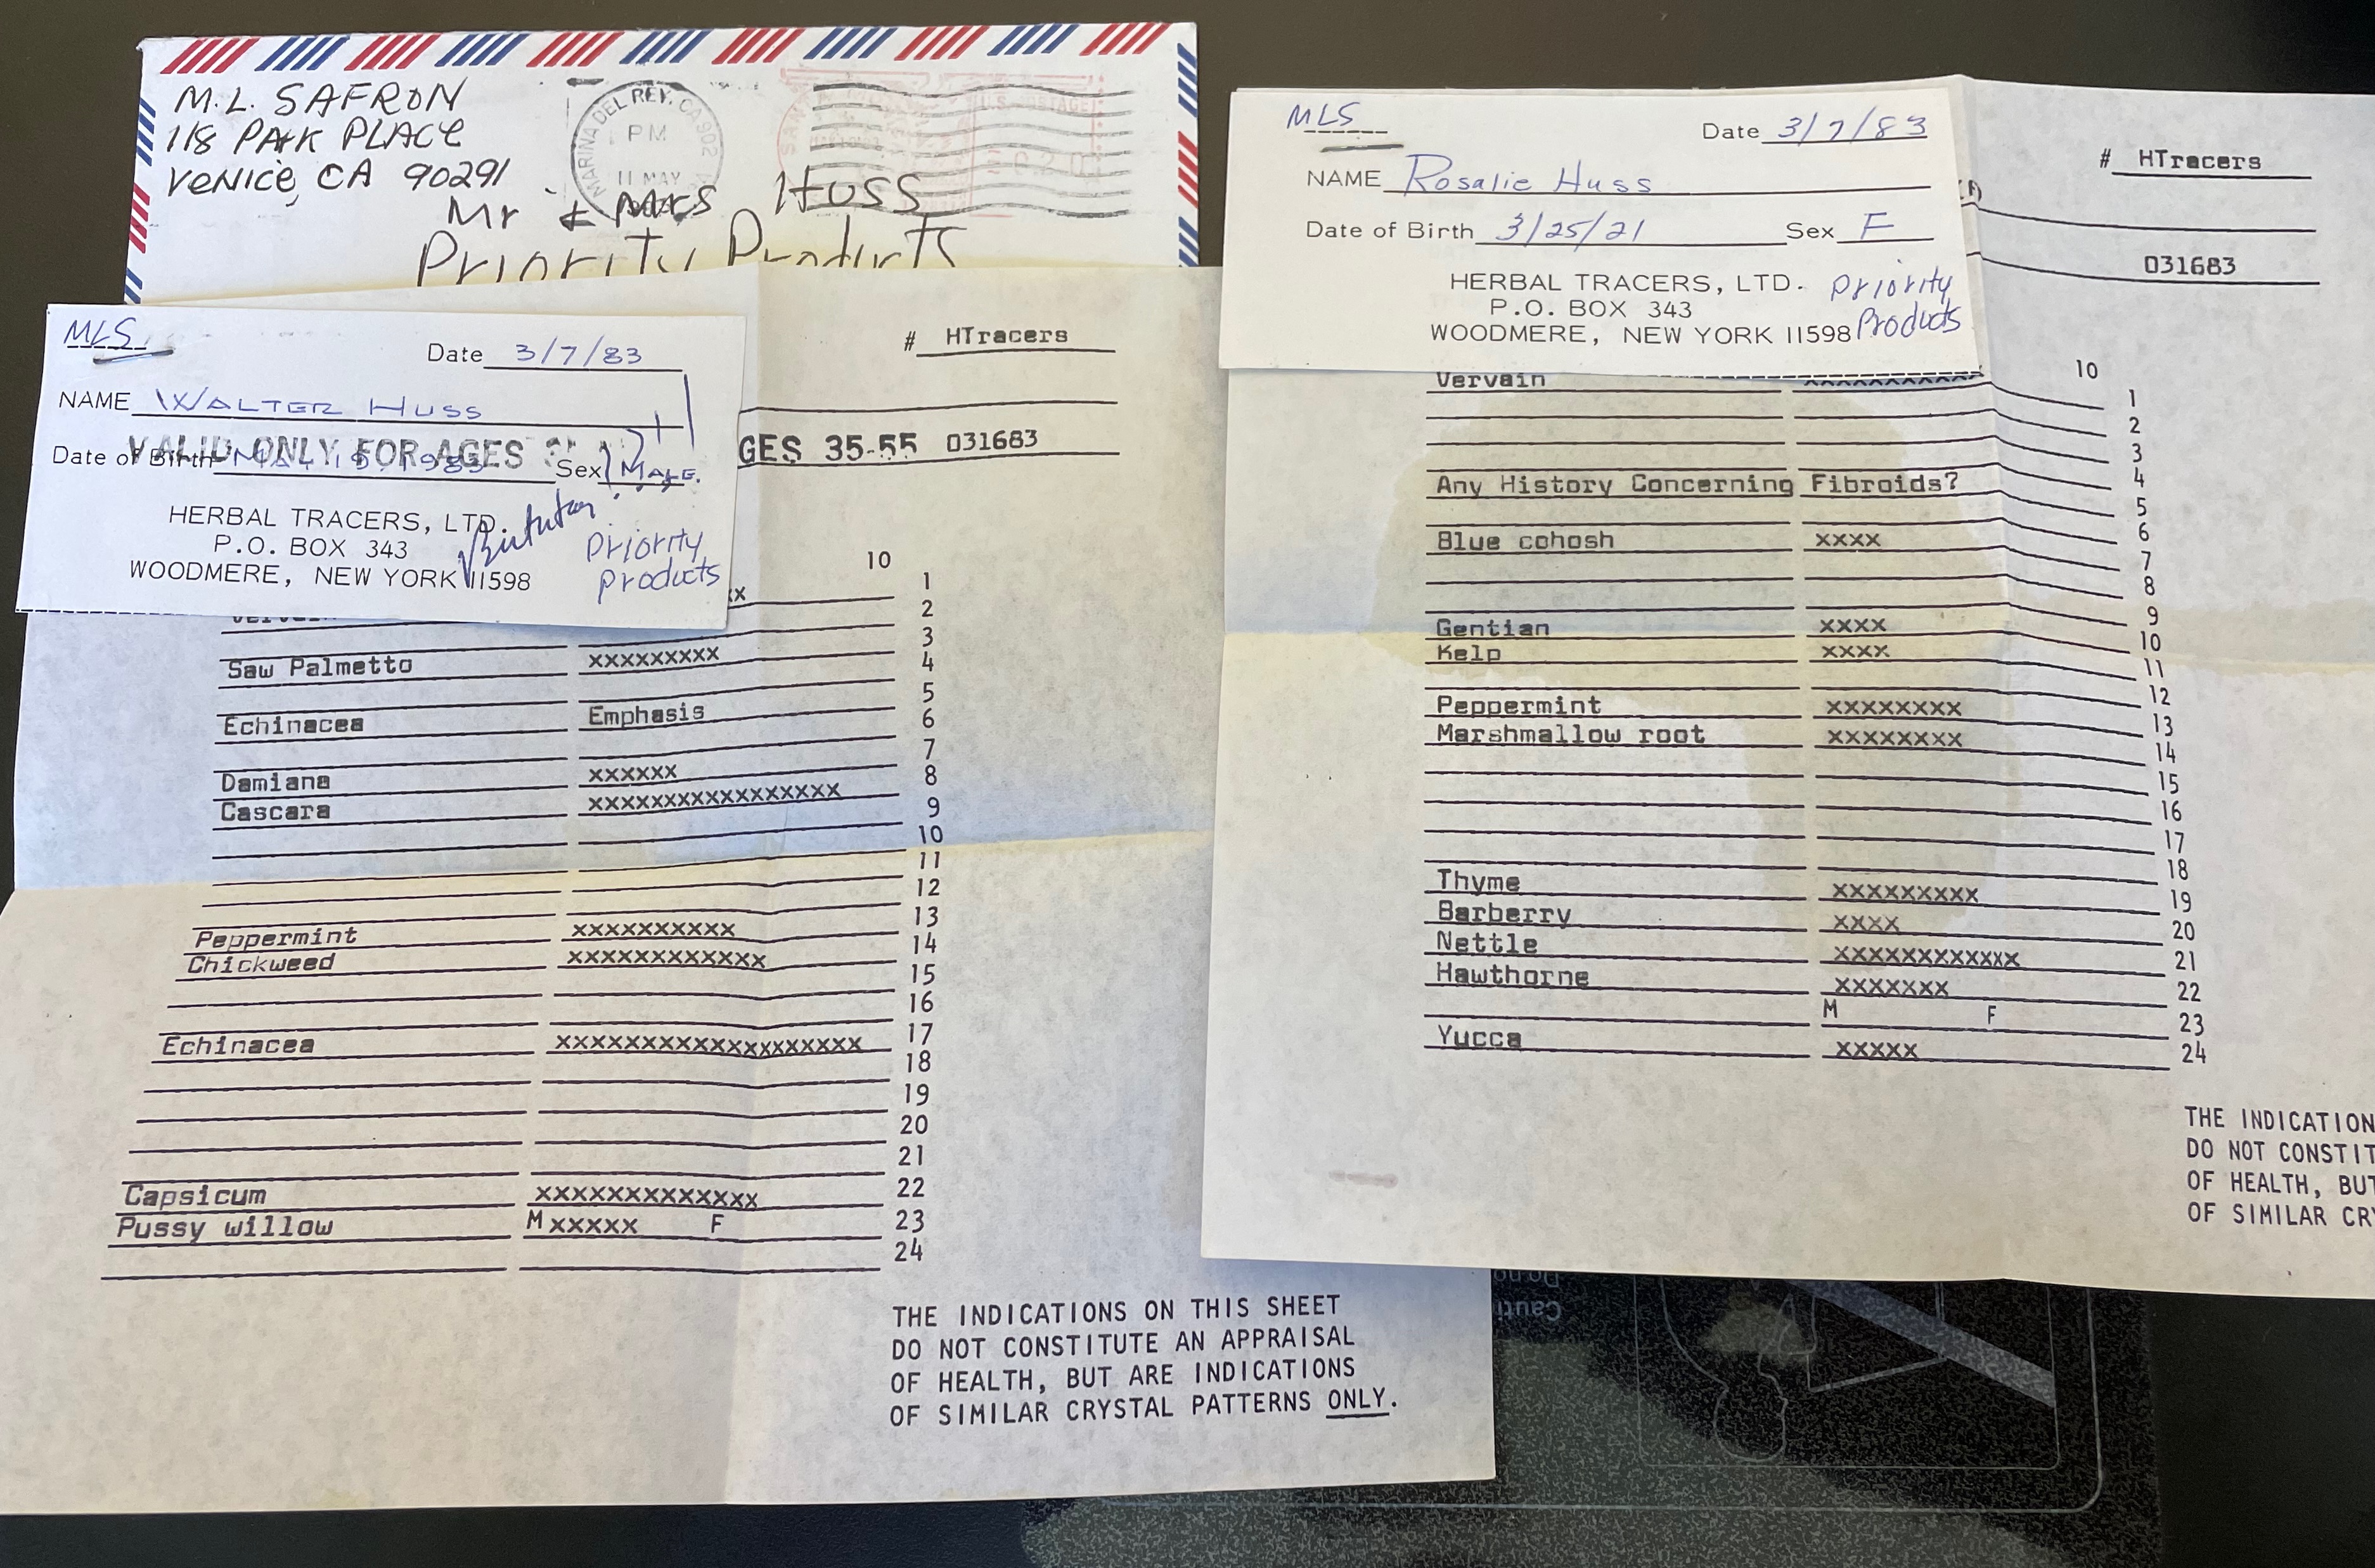 M.L. SAFRON
118 PARK PLACE
VENICE, CA 90291
MARINA DEL REY, CA 902
PM
11 MAY
U.S. POSTAGE
Mr & Mrs Huss
Priority Products
MLS
Date 3/7/83
NAME WALTER HUSS
VALID ONLY FOR AGES
Date of Birth Sex MALE.
HERBAL TRACERS, LTD.
P.O. BOX 343
WOODMERE, NEW YORK 11598
Priority
Products
# HTracers
GES 35-55 031683
10
xx 1
2
3
Saw Palmetto xxxxxxxxx 4
5
Echinacea Emphasis 6
7
Damiana xxxxxx 8
Cascara xxxxxxxxxxxxxxxxx 9
10
11
12
Peppermint xxxxxxxxxx 13
Chickweed xxxxxxxxxxxx 14
15
16
Echinacea xxxxxxxxxxxxxxxxxxx 17
18
19
20
21
Capsicum xxxxxxxxxxxxx 22
Pussy willow M xxxxx F 23
24
THE INDICATIONS ON THIS SHEET
DO NOT CONSTITUTE AN APPRAISAL
OF HEALTH, BUT ARE INDICATIONS
OF SIMILAR CRYSTAL PATTERNS ONLY.
MLS
Date 3/7/83
NAME Rosalie Huss
Date of Birth 3/25/21 Sex F
HERBAL TRACERS, LTD.
P.O. BOX 343
WOODMERE, NEW YORK 11598
Priority
Products
# HTracers
031683
10
Vervain xxxxxxxxxxx 1
2
3
Any History Concerning Fibroids? 4
5
Blue cohosh xxxx 6
7
8
Gentian xxxx 9
Kelp xxxx 10
11
Peppermint xxxxxxxx 12
Marshmallow root xxxxxxxx 13
14
15
16
17
18
Thyme xxxxxxxxx 19
Barberry xxxx 20
Nettle xxxxxxxxxxxx 21
Hawthorne xxxxxxx 22
M F 23
Yucca xxxxx 24
THE INDICATION
DO NOT CONSTIT
OF HEALTH, BUT
OF SIMILAR CRY